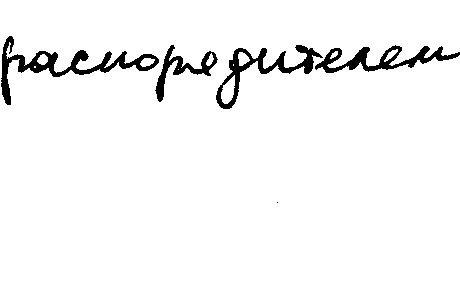 распоредителем